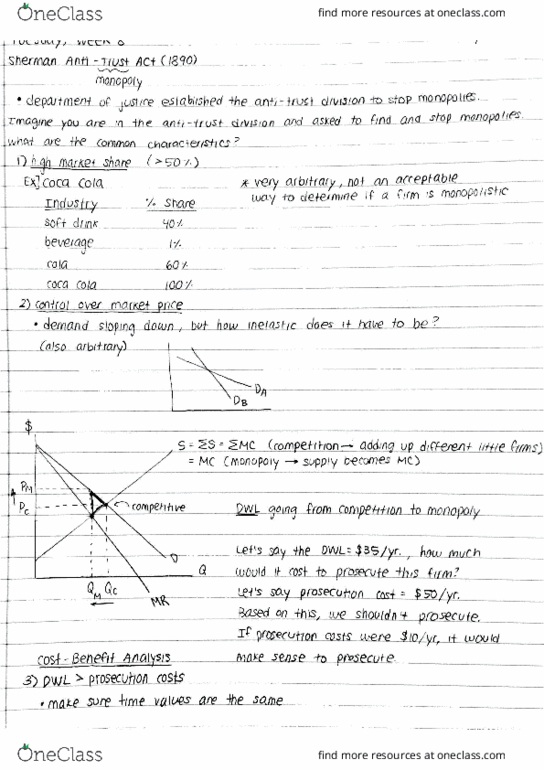 OneClass
find more resources at oneclass.com
Tuesday, WEEK 8
Sherman Anti-Trust Act (1890)
monopoly
• department of justice established the anti-trust division to stop monopolies.
Imagine you are in the anti-trust division and asked to find and stop monopolies.
what are the common characteristics?
1) high market share (>50%)
Ex] coca cola
* very arbitrary, not an acceptable
way to determine if a firm is monopolistic
Industry % share
soft drink 40%
beverage 1%
cola 60%
coca cola 100%
2) control over market price
• demand sloping down, but how inelastic does it have to be?
(also arbitrary)
DA
DB
$
S = ΣS = ΣMC (competition → adding up different little firms)
= MC (monopoly → supply becomes MC)
PM
PC
competitive
DWL going from competition to monopoly
D
Q
QM QC
MR
Let's say the DWL = $35/yr., how much
would it cost to prosecute this firm?
Let's say prosecution cost = $50/yr.
Based on this, we shouldn't prosecute.
If prosecution costs were $10/yr, it would
make sense to prosecute.
Cost-Benefit Analysis
3) DWL > prosecution costs
• make sure time values are the same
OneClass
find more resources at oneclass.com